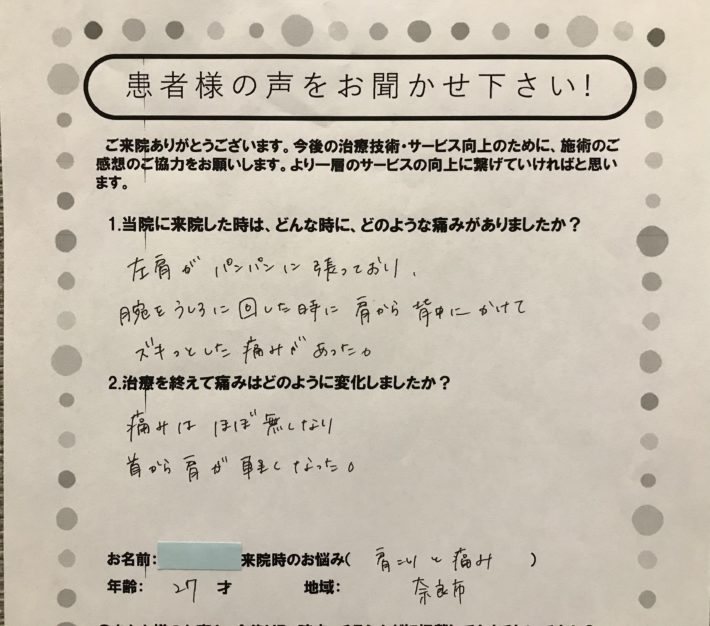 患者様の声をお聞かせ下さい!
ご来院ありがとうございます。今後の治療技術・サービス向上のために、施術のご
感想のご協力をお願いします。より一層のサービスの向上に繋げていければと思い
ます。
1.当院に来院した時は、どんな時に、どのような痛みがありましたか？
左肩がパンパンに張っており、
腕をうしろに回した時に肩から背中にかけて
ズキっとした痛みがあった。
2.治療を終えて痛みはどのように変化しましたか？
痛みはほぼ無くなり
首から肩が軽くなった。
お名前: 来院時のお悩み( 肩こりと痛み )
年齢: 27 才 地域: 奈良市